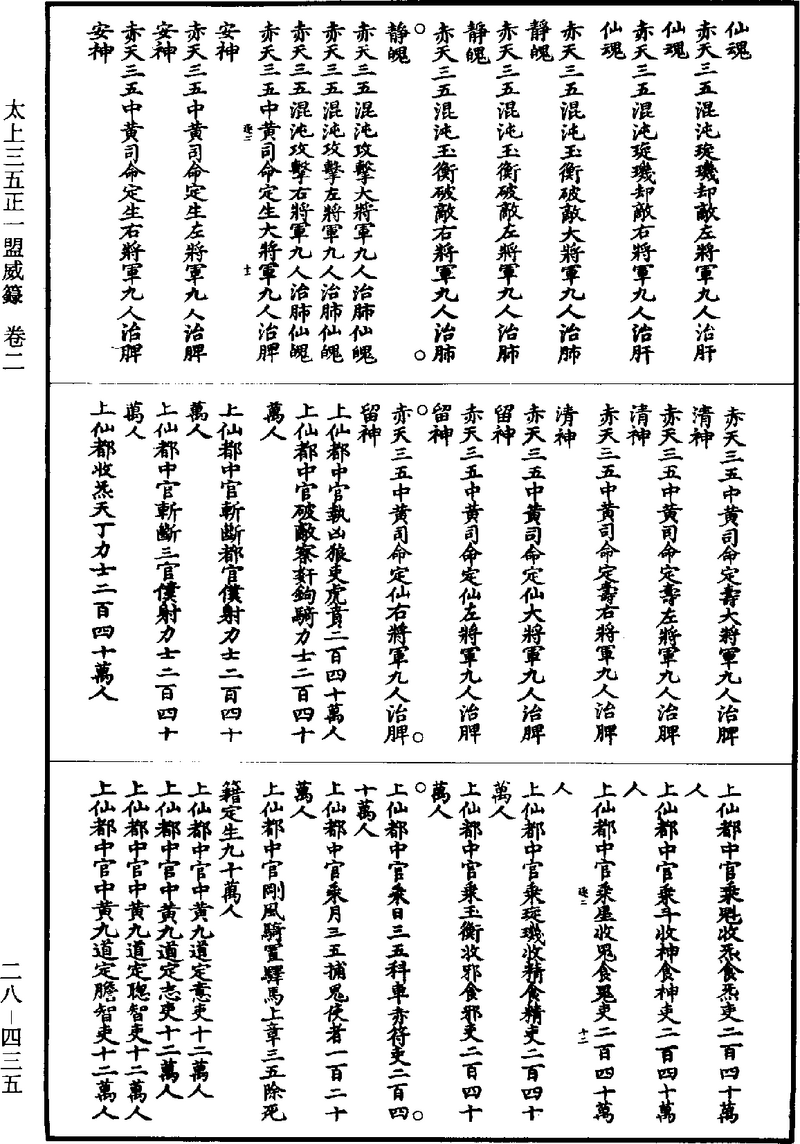 仙魂
赤天三五混沌琁璣却敵左將軍九人治肝
仙魂
赤天三五混沌琁璣却敵右將軍九人治肝
仙魂
赤天三五混沌玉衡破敵大將軍九人治肺
靜魄
赤天三五混沌玉衡破敵左將軍九人治肺
靜魄
赤天三五混沌玉衡破敵右將軍九人治肺
靜魄
赤天三五混沌攻擊大將軍九人治肺仙魄
赤天三五混沌攻擊左將軍九人治肺仙魄
赤天三五混沌攻擊右將軍九人治肺仙魄
赤天三五中黃司命定生大將軍九人治脾
安神
赤天三五中黃司命定生左將軍九人治脾
安神
赤天三五中黃司命定生右將軍九人治脾
安神
赤天三五中黃司命定壽大將軍九人治脾
清神
赤天三五中黃司命定壽左將軍九人治脾
清神
赤天三五中黃司命定壽右將軍九人治脾
清神
赤天三五中黃司命定仙大將軍九人治脾
留神
赤天三五中黃司命定仙左將軍九人治脾
留神
赤天三五中黃司命定仙右將軍九人治脾
留神
上仙都中官執凶狼吏虎賁二百四十萬人
上仙都中官破敵察奸鉤騎力士二百四十
萬人
上仙都中官斬斷都官僕射力士二百四十
萬人
上仙都中官斬斷三官僕射力士二百四十
萬人
上仙都收炁天丁力士二百四十萬人
上仙都中官乘魁收炁食炁吏二百四十萬
人
上仙都中官乘斗收神食神吏二百四十萬
人
上仙都中官乘星收鬼食鬼吏二百四十萬
人
上仙都中官乘琁璣收精食精吏二百四十
萬人
上仙都中官乘玉衡收邪食邪吏二百四十
萬人
上仙都中官乘日三五科車赤符吏二百四
十萬人
上仙都中官乘月三五捕鬼使者一百二十
萬人
上仙都中官剛風騎置驛馬上章三五除死
籍定生九十萬人
上仙都中官中黃九道定意吏十二萬人
上仙都中官中黃九道定志吏十二萬人
上仙都中官中黃九道定聰智吏十二萬人
上仙都中官中黃九道定膽智吏十二萬人
太上三五正一盟威籙　卷二
二八－四三五